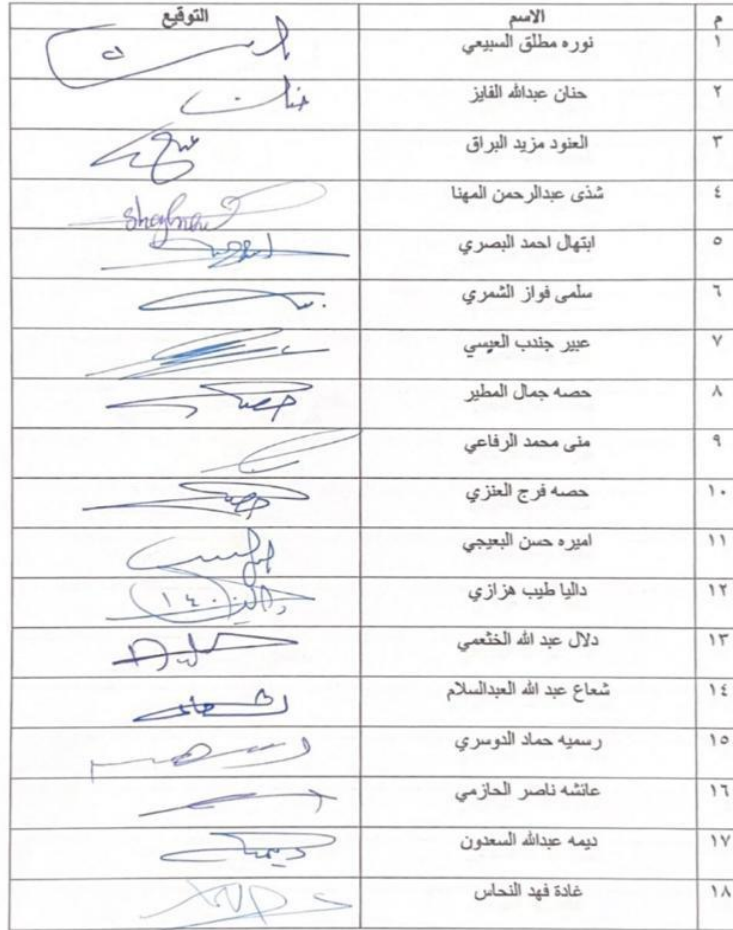 م الاسم التوقيع
١ نوره مطلق السبيعي
٢ حنان عبدالله الفايز حنان
٣ العنود مزيد البراق
٤ شذى عبدالرحمن المهنا
٥ ابتهال احمد البصري
٦ سلمى فواز الشمري
٧ عبير جندب العيسي
٨ حصه جمال المطير حصه
٩ منى محمد الرفاعي
١٠ حصه فرج العنزي حصه
١١ اميره حسن البعيجي
١٢ داليا طيب هزازي
١٣ دلال عبد الله الخثعمي
١٤ شعاع عبد الله العبدالسلام
١٥ رسميه حماد الدوسري
١٦ عائشه ناصر الحازمي
١٧ ديمه عبدالله السعدون ديمه
١٨ غادة فهد النحاس